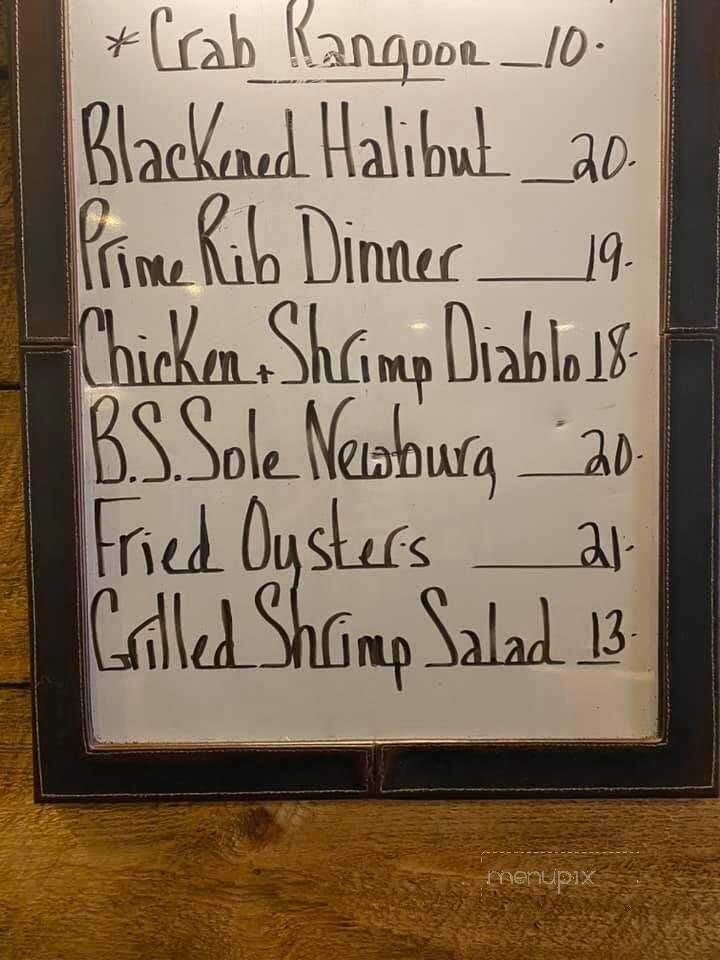 * Crab Rangoon _10.
Blackened Halibut _20.
Prime Rib Dinner ___19.
Chicken + Shrimp Diablo 18.
B.S. Sole Newburg __20.
Fried Oysters ___21.
Grilled Shrimp Salad 13.
menupix